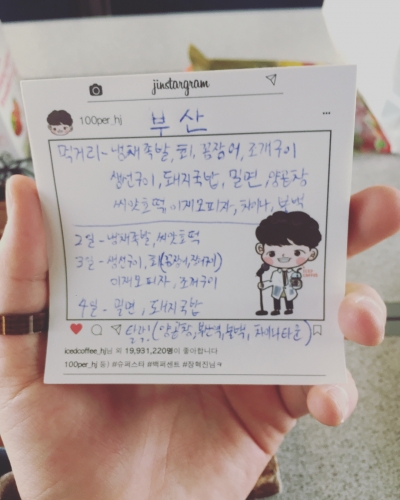 jinstargram
100per_hj
부산
먹거리~냉채족발, 회, 꼼장어, 조개구이
생선구이, 돼지국밥, 밀면, 양곱창
씨앗호떡, 이재모피자,
2일 - 냉채족발, 씨앗호떡
3일 - 생선구이, 회(꼼장어,
이재모피자, 조개구이
4일 - 밀면, 돼지국밥
(양곱창,
icedcoffee_hj님 외 19,931,220명이 좋아합니다
100per_hj #슈퍼스타 #백퍼센트 #장혁진님